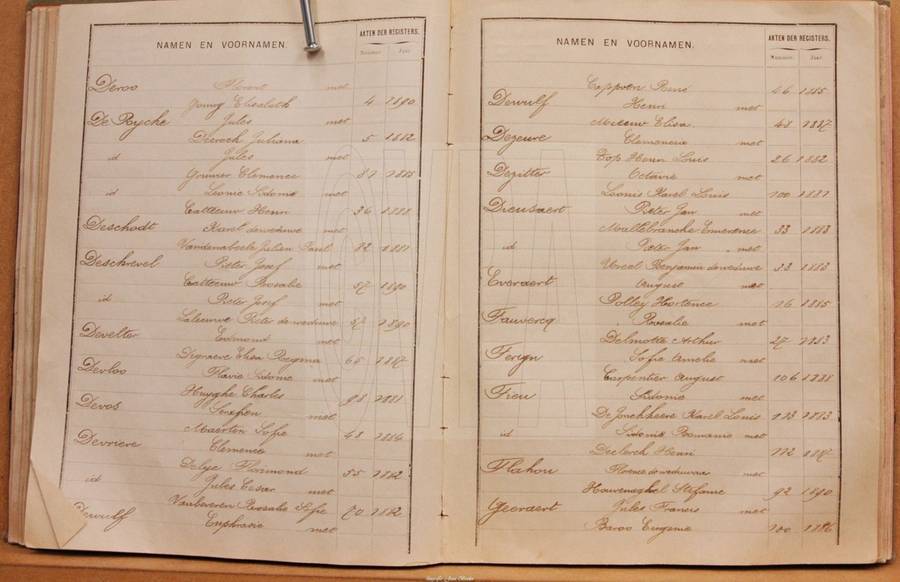 NAMEN EN VOORNAMEN.
AKTEN DER REGISTERS.
Nummer. Jaar.
Deroo Florent met
Joung Elisabeth 4 1890
De Rycke Jules met
Juliana 5 1882
id Jules met
Clemence 1885
id Leonie Sidonie met
Catteeuw Henri 36 1888
Deschodt Karel de weduwe met
Vandenabeele Julien Paul 82 1881
Deschrevel Pieter Josef met
Catteeuw Rosalie 57 1890
id Pieter Josef met
Pieter de weduwe 57 1890
Develter Edmond met
Digraeve Elisa Regina 65 1887
Devloo Flavie Sidonie met
Huyghe Charles 98 1881
Devos Serafien met
Maerten Sofie 48 1884
Devriere Clemence met
Delye Florimond 55 1882
id Jules Cesar met
Vanbeveren Rosalie Sofie 70 1882
Dewulf Euphrasie met
NAMEN EN VOORNAMEN.
AKTEN DER REGISTERS.
Nummer. Jaar.
Coppoen René 46 1885
Dewulf Henri met
Meeuw Elisa 48 1887
Dezeure Clemence met
Top Henri Louis 26 1882
Dezitter Octavie met
Karel Louis 100 1887
Dieusaert Pieter Jan met
Mallebranche Emerence 33 1883
id Pieter Jan met
Benjamin de weduwe 33 1883
Everaert August met
Polley Hortence 16 1885
Fauvercq Rosalie met
Delmotte Arthur 27 1883
Feryn Sofie Amelie met
Carpentier August 106 1888
Fieu Sidonie met
De Jonckheere Karel Louis 1883
id Sidonie Romanie met
Dierck Henri 112
Flahou Florence de weduwe met
Houvenaghel Stefanie 92 1890
Geeraert Jules Francis met
Baroo Eugenie 100 1886